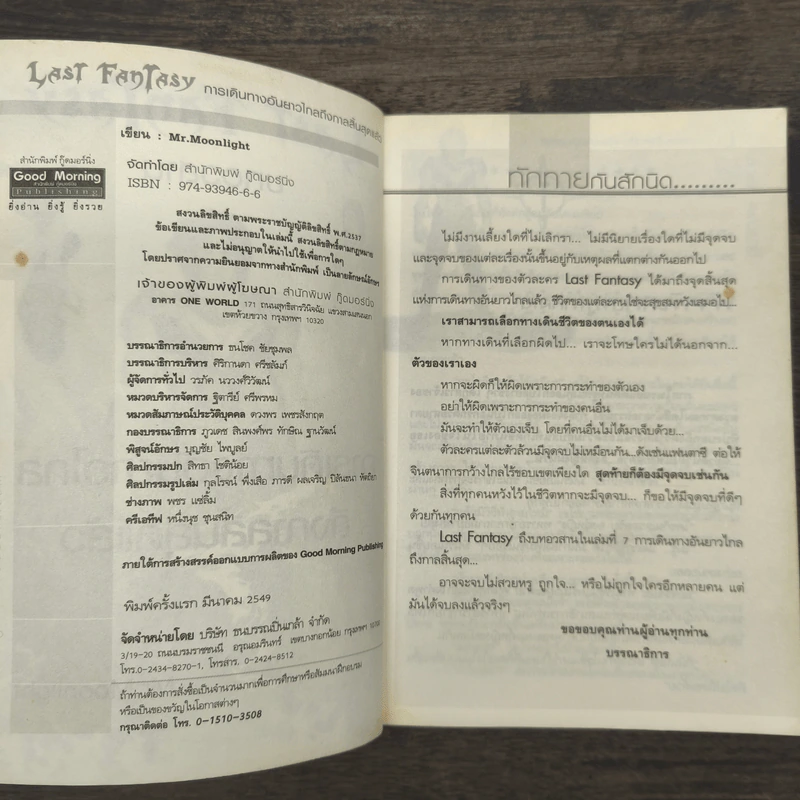 Last Fantasy การเดินทางอันยาวไกลถึงกาลสิ้นสุดแล้ว
สำนักพิมพ์ กู๊ดมอร์นิ่ง
Good Morning
สำนักพิมพ์ กู๊ดมอร์นิ่ง
Publishing
ยิ่งอ่าน ยิ่งรู้ ยิ่งรวย
เขียน : Mr.Moonlight
จัดทำโดย สำนักพิมพ์ กู๊ดมอร์นิ่ง
ISBN : 974-93946-6-6
สงวนลิขสิทธิ์ ตามพระราชบัญญัติลิขสิทธิ์ พ.ศ.2537
ข้อเขียนและภาพประกอบในเล่มนี้ สงวนลิขสิทธิ์ตามกฎหมาย
และไม่อนุญาตให้นำไปใช้เพื่อการใดๆ
โดยปราศจากความยินยอมจากทางสำนักพิมพ์ เป็นลายลักษณ์อักษร
เจ้าของผู้พิมพ์ผู้โฆษณา สำนักพิมพ์ กู๊ดมอร์นิ่ง
อาคาร ONE WORLD 171 ถนนสุทธิสารวินิจฉัย แขวงสามเสนนอก
เขตห้วยขวาง กรุงเทพฯ 10320
บรรณาธิการอำนวยการ ธนโชค ชัยชุมพล
บรรณาธิการบริหาร ศิริกานดา ศรีชลัมภ์
ผู้จัดการทั่วไป วรภัค นววงศ์วิวัฒน์
หมวดบริหารจัดการ ฐิตารีย์ ศรีพรหม
หมวดสัมภาษณ์ประวัติบุคคล ดวงพร เพชรสังกฤต
กองบรรณาธิการ ภูวเดช สินพงศ์พร ทักษิณ ฐานวัฒน์
พิสูจน์อักษร บุญชัย ไพบูลย์
ศิลปกรรมปก สิทธา โชติน้อย
ศิลปกรรมรูปเล่ม กุลโรจน์ พึ่งเสือ ภารดี ผลเจริญ ปิลันธนา
ช่างภาพ พชร แซ่ลิ้ม
ครีเอทีฟ หนึ่งนุช ชุนสนิท
ภายใต้การสร้างสรรค์ออกแบบการผลิตของ Good Morning Publishing
พิมพ์ครั้งแรก มีนาคม 2549
จัดจำหน่ายโดย บริษัท ธนบรรณปิ่นเกล้า จำกัด
3/19-20 ถนนบรมราชชนนี อรุณอมรินทร์ เขตบางกอกน้อย กรุงเทพฯ
โทร.0-2434-8270-1, โทรสาร. 0-2424-8512
ถ้าท่านต้องการสั่งซื้อเป็นจำนวนมากเพื่อการศึกษาหรือสัมมนาฝึกอบรม
หรือเป็นของขวัญในโอกาสต่างๆ
กรุณาติดต่อ โทร. 0-1510-3508
ทักทายกันสักนิด.........
ไม่มีงานเลี้ยงใดที่ไม่เลิกรา... ไม่มีนิยายเรื่องใดที่ไม่มีจุดจบ
และจุดจบของแต่ละเรื่องนั้นขึ้นอยู่กับเหตุผลที่แตกต่างกันออกไป
การเดินทางของตัวละคร Last Fantasy ได้มาถึงจุดสิ้นสุด
แห่งการเดินทางอันยาวไกลแล้ว ชีวิตของแต่ละคนใช่จะสุขสมหวังเสมอไป...
เราสามารถเลือกทางเดินชีวิตของตนเองได้
หากทางเดินที่เลือกผิดไป... เราจะโทษใครไม่ได้นอกจาก...
ตัวของเราเอง
หากจะผิดก็ให้ผิดเพราะการกระทำของตัวเอง
อย่าให้ผิดเพราะการกระทำของคนอื่น
มันจะทำให้ตัวเองเจ็บ โดยที่คนอื่นไม่ได้มาเจ็บด้วย...
ตัวละครแต่ละตัวล้วนมีจุดจบไม่เหมือนกัน...ดังเช่นแฟนตาซี ต่อให้
จินตนาการกว้างไกลไร้ขอบเขตเพียงใด สุดท้ายก็ต้องมีจุดจบเช่นกัน
สิ่งที่ทุกคนหวังไว้ในชีวิตหากจะมีจุดจบ... ก็ขอให้มีจุดจบที่ดีๆ
ด้วยกันทุกคน
Last Fantasy ถึงบทอวสานในเล่มที่ 7 การเดินทางอันยาวไกล
ถึงกาลสิ้นสุด...
อาจจะจบไม่สวยหรู ถูกใจ... หรือไม่ถูกใจใครอีกหลายคน แต่
มันได้จบลงแล้วจริงๆ
ขอขอบคุณท่านผู้อ่านทุกท่าน
บรรณาธิการ